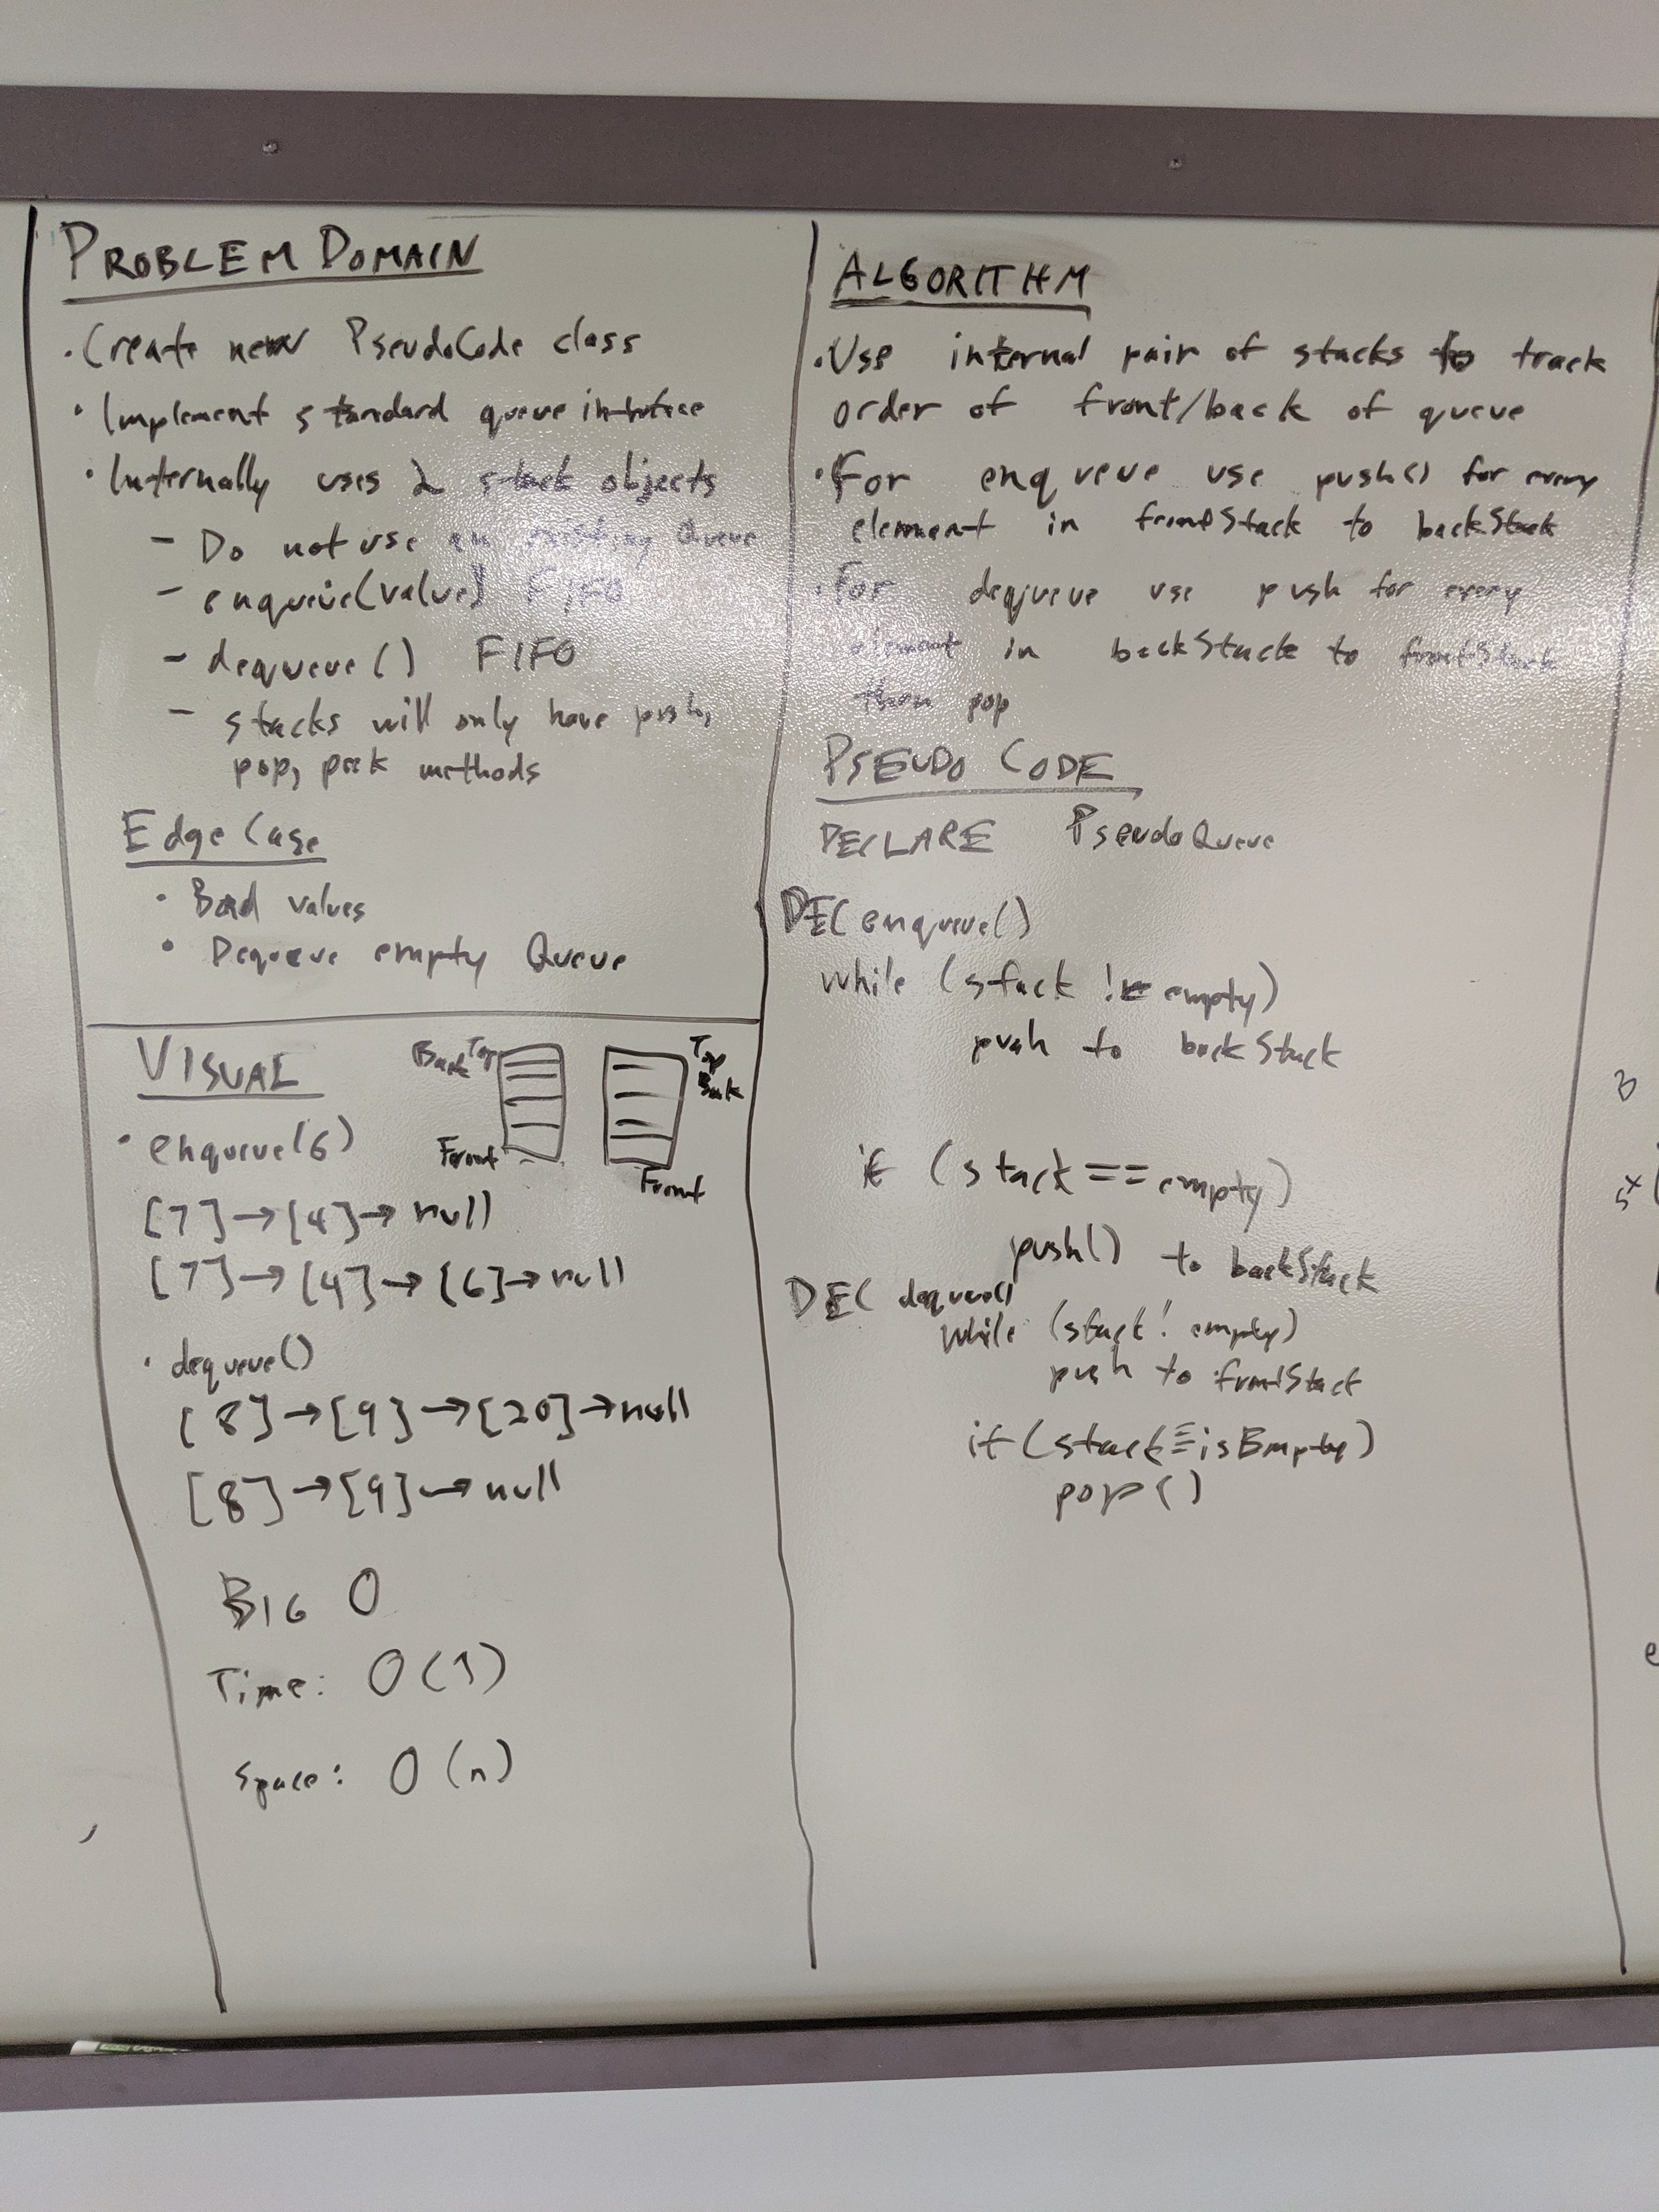 PROBLEM DOMAIN
· Create new PseudoCode class
· Implement standard queue interface
· Internally uses 2 stack objects
- Do not use an existing Queue
- enqueue(value) FIFO
- dequeue() FIFO
- stacks will only have push,
pop, peek methods
Edge Case
· Bad values
· Dequeue empty Queue
VISUAL
Back Top
Front
Top
Back
Front
· enqueue(6)
[7]→[4]→ null
[7]→[4]→[6]→null
· dequeue()
[8]→[9]→[20]→null
[8]→[9]→null
BIG O
Time: O(1)
Space: O(n)
ALGORITHM
· Use internal pair of stacks to track
order of front/back of queue
· For enqueue use push() for every
element in frontStack to backStack
· For dequeue use push for every
element in backStack to frontStack
then pop
PSEUDO CODE
DECLARE PseudoQueue
DEC enqueue()
while (stack != empty)
push to backStack
if (stack == empty)
push() to backStack
DEC dequeue()
while (stack ! empty)
push to frontStack
if (stack ≡ isEmpty)
pop()